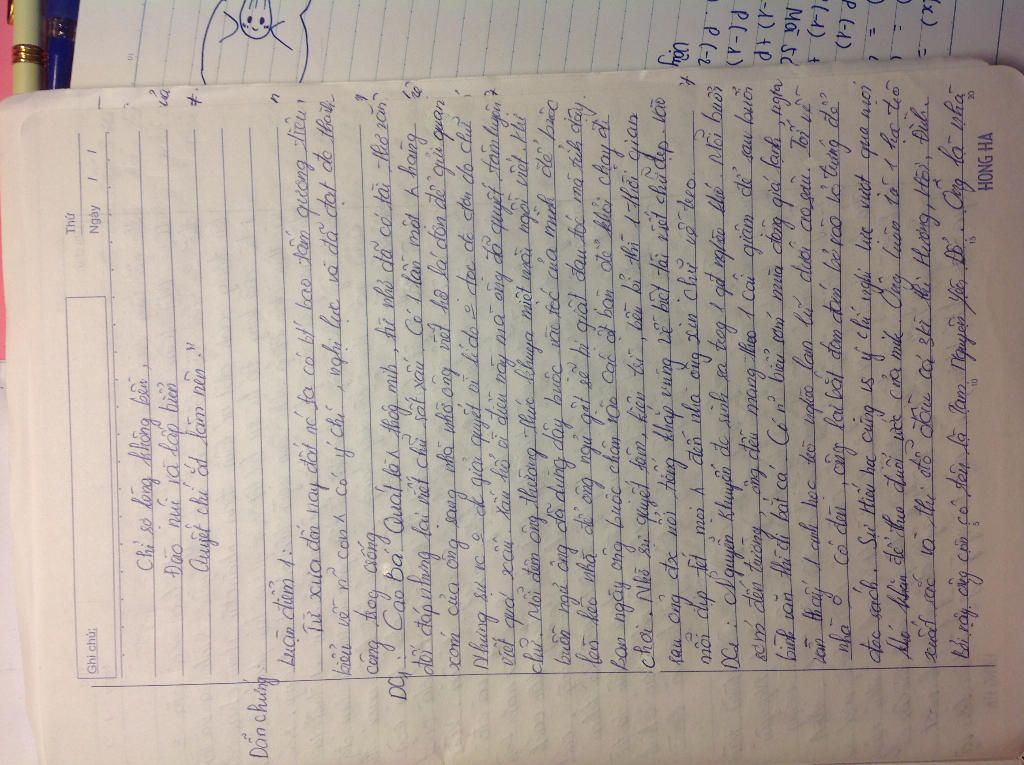 Thứ
Ngày / /
Ghi chú:
Chỉ sợ lòng không bền,
Đào núi và lấp biển
Quyết chí ắt làm nên."
Dẫn chứng:
Luận điểm 1:
Từ xưa đến nay đất nc ta có bt bao tấm gương tiêu
biểu về n̄ con có ý chí, nghị lực và đã đạt đc thành
công trog cuộc sống
DC1: Cao Bá Quát là thôg mih, từ nhỏ đã có tài thơ văn
đối đáp nhưng lại viết chữ rất xấu. Có 1 lần một hàng
xóm của ông sang nhà nhờ ông viết hộ lá đơn để gửi quan
Nhưng sự vc o đc giải quyết vì lí do o đọc đc đơn do chữ
viết quá xấu. Xấu hổ vì điều này nên ông đã quyết tâm luyện
chữ. Mỗi đêm ông thường thức khuya miệt mài ngồi viết. Khi
buồn ngủ ông đã dùng dây buộc vào tóc của mình để buộc
lên kèo nhà để ông ngủ gật sẽ bị giật đau tóc mà tỉnh dậy.
Ban ngày ông buộc chân vào cái ở bàn để khỏi chạy đi
chơi. Nhờ sự quyết tâm kiên trì, bền bỉ thì 1 thời gian
sau ông đc nổi tiếng khắp vùng về biệt tài viết chữ đẹp. Vào
mỗi dịp tết mọi đến nhà ông xin chữ về treo.
DC2: Nguyễn Khuyến đc sinh ra trog 1 gđ nghèo khó. Mỗi buổi
sớm đến trường ông đều mang theo 1 cái để sau buổi
bình văn thì đi Có n̄ biểu sớm mùa đông giá lạnh, ngta
vẫn thấy 1 anh học trò nghèo lam lũ dưới Tối về
nhà o có đèn, ông lại bắt đom đóm bỏ vào vỏ trứng để
đọc sách. Sự hiếu học cùng vs ý chí nghị lực vượt qua mọi
khó khăn để theo đuổi ước của mik Ông luôn là 1 hs
xuất sắc và thi đỗ đầu cả 3 kì thi Hương, Hội, Đình.
Bởi vậy ông còn có tên là Tam Nguyên Yên Đổ. Ông là nhà
5
10
15
20
HONG HA